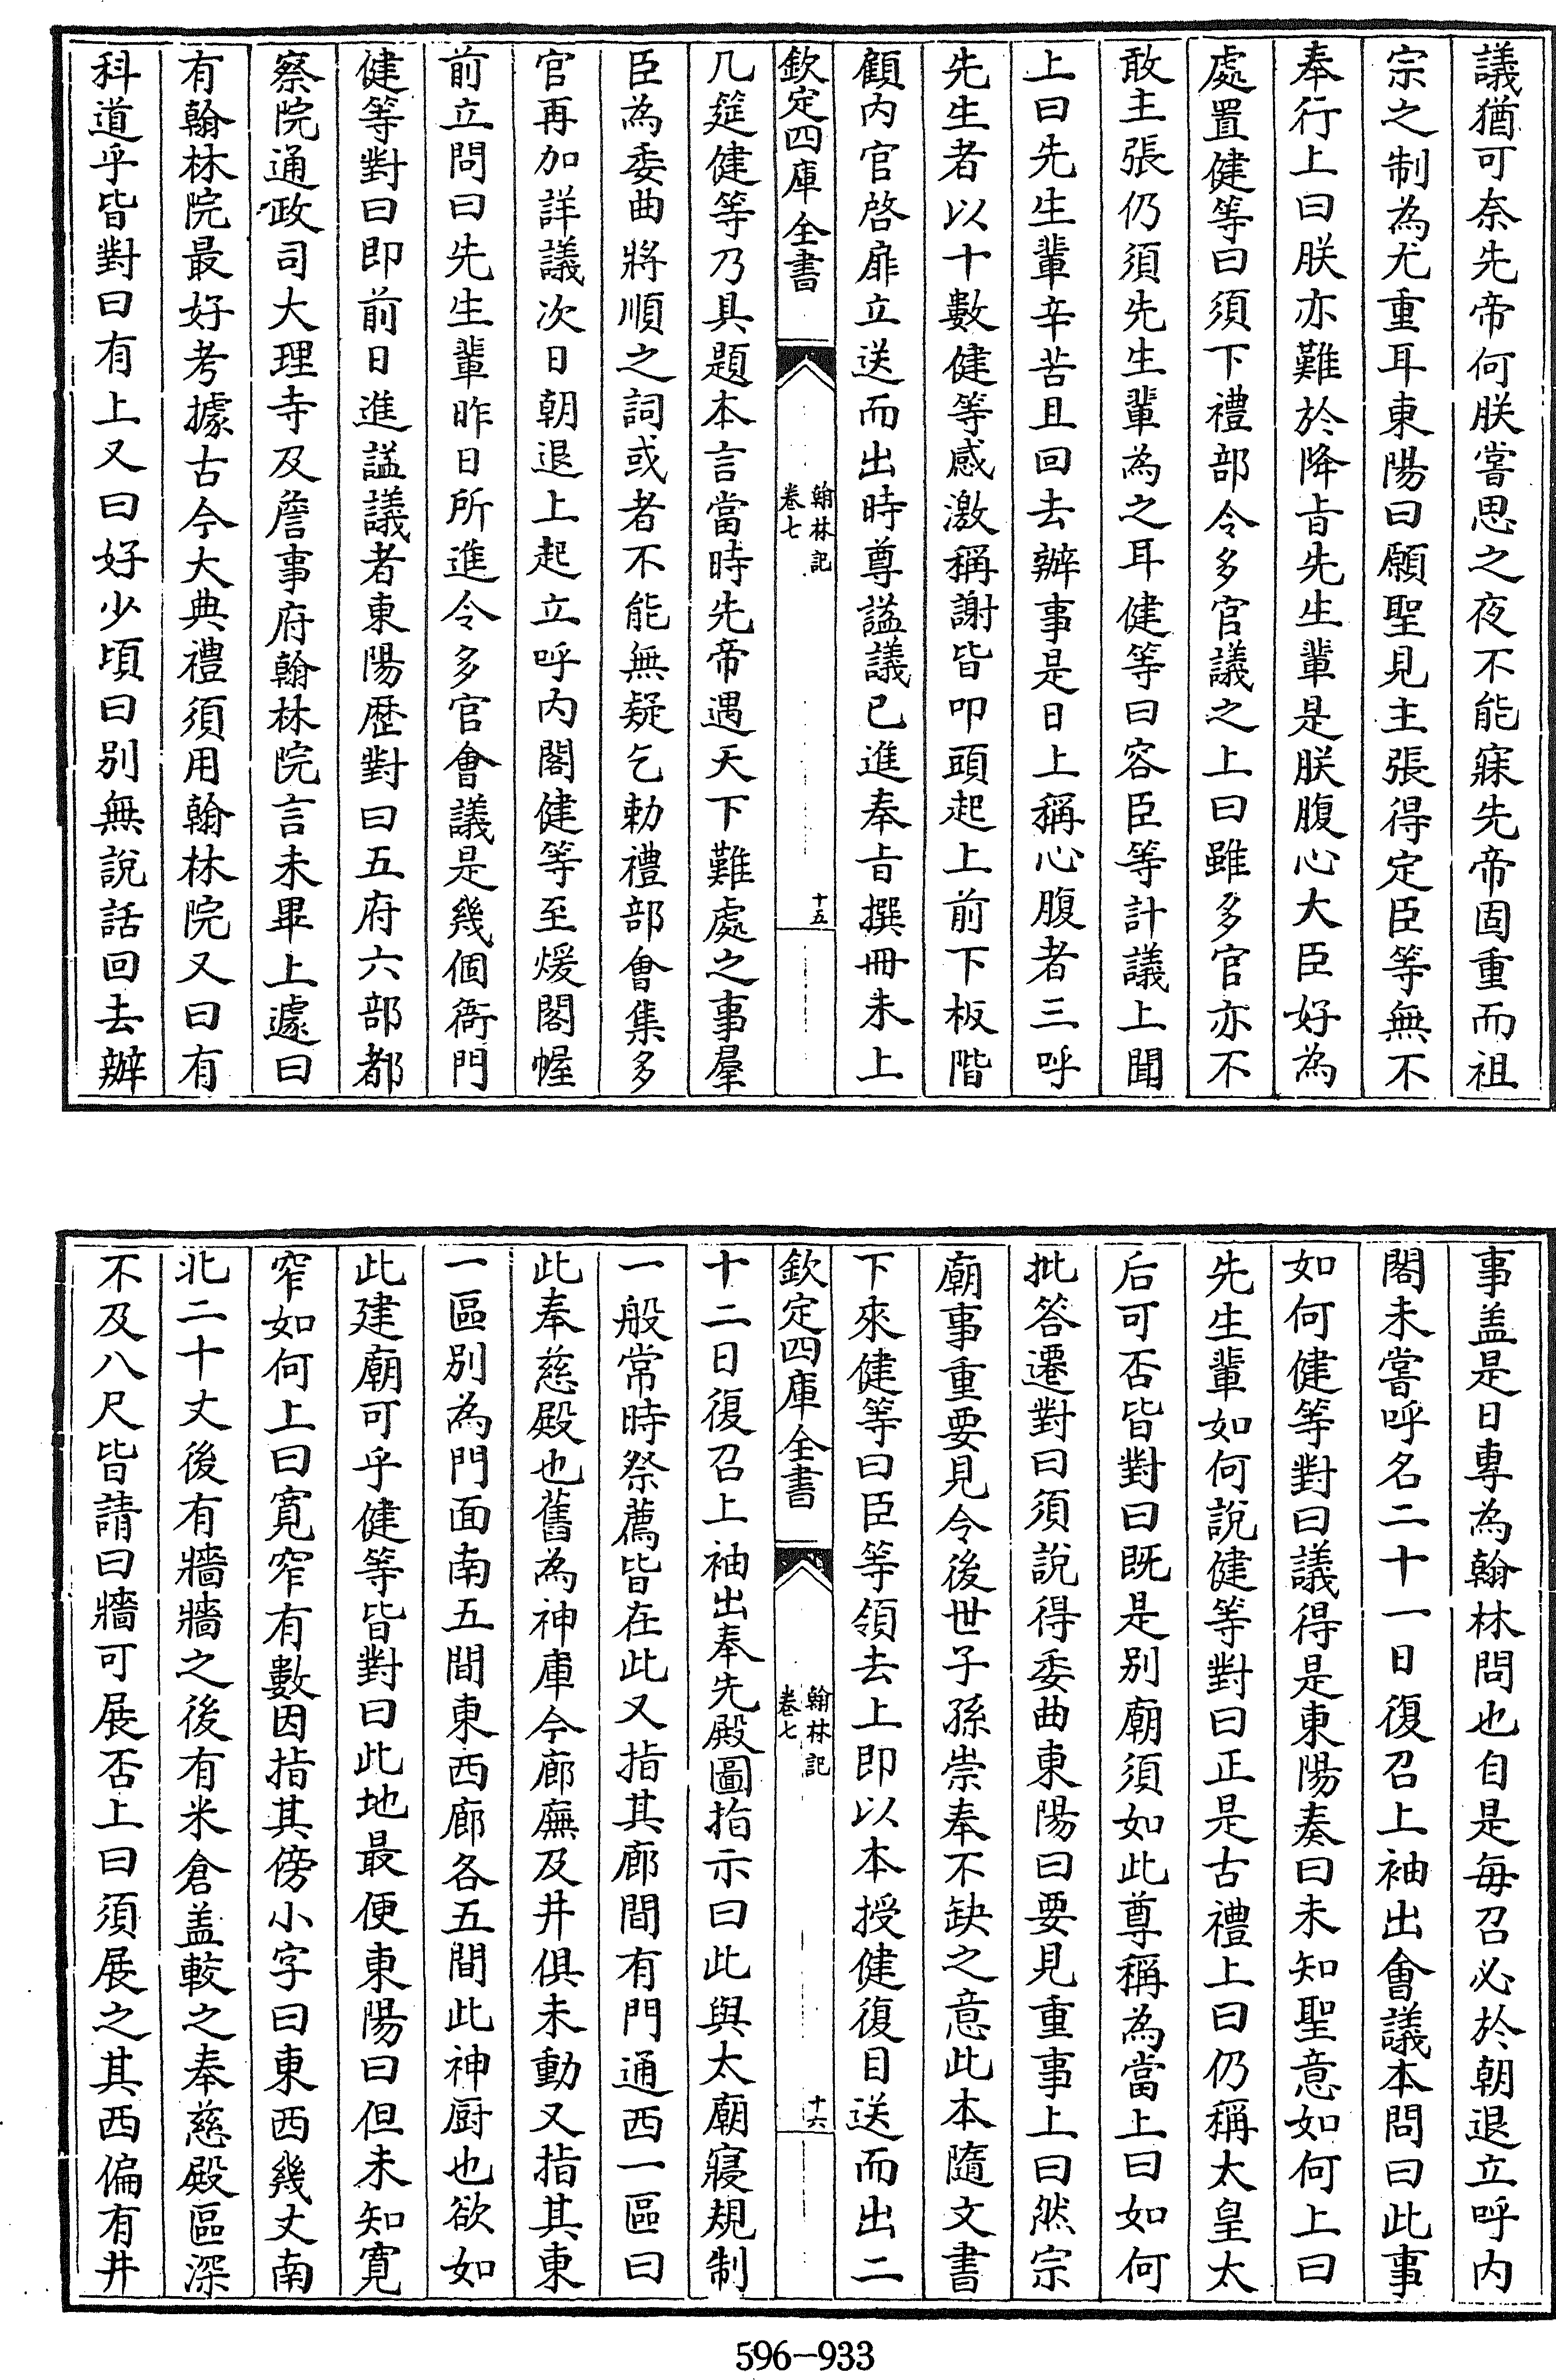 議猶可奈先帝何朕嘗思之夜不能寐先帝固重而祖
宗之制為尤重耳東陽曰願聖見主張得定臣等無不
奉行上曰朕亦難於降㫖先生輩是朕腹心大臣好為
處置健等曰須下禮部令多官議之上曰雖多官亦不
敢主張仍須先生輩為之耳健等曰容臣等計議上聞
上曰先生輩辛苦且回去辦事是日上稱心腹者三呼
先生者以十數健等感激稱謝皆叩頭起上前下板階
顧内官啓扉立送而出時尊謚議已進奉㫖撰冊未上
欽定四庫全書
翰林記
卷七
十五
几筵健等乃具題本言當時先帝遇天下難處之事羣
臣為委曲將順之詞或者不能無疑乞勅禮部會集多
官再加詳議次日朝退上起立呼内閣健等至煖閣幄
前立問曰先生輩昨日所進令多官會議是幾個衙門
健等對曰即前日進謚議者東陽歴對曰五府六部都
察院通政司大理寺及詹事府翰林院言未畢上遽曰
有翰林院最好考據古今大典禮須用翰林院又曰有
科道乎皆對曰有上又曰好少頃曰别無說話回去辦
事盖是日專為翰林問也自是每召必於朝退立呼内
閣未嘗呼名二十一日復召上袖出會議本問曰此事
如何健等對曰議得是東陽奏曰未知聖意如何上曰
先生輩如何說健等對曰正是古禮上曰仍稱太皇太
后可否皆對曰既是别廟須如此尊稱為當上曰如何
批答遷對曰須說得委曲東陽曰要見重事上曰然宗
廟事重要見令後世子孫崇奉不缺之意此本隨文書
下來健等曰臣等領去上即以本授健復目送而出二
欽定四庫全書
翰林記
卷七
十六
十二日復召上袖出奉先殿圖指示曰此與太廟寢規制
一般常時祭薦皆在此又指其廊間有門通西一區曰
此奉慈殿也舊為神庫今廊廡及井俱未動又指其東
一區别為門面南五間東西廊各五間此神厨也欲如
此建廟可乎健等皆對曰此地最便東陽曰但未知寛
窄如何上曰寛窄有數因指其傍小字曰東西幾丈南
北二十丈後有牆牆之後有米倉盖較之奉慈殿區深
不及八尺皆請曰牆可展否上曰須展之其西偏有井
596-933